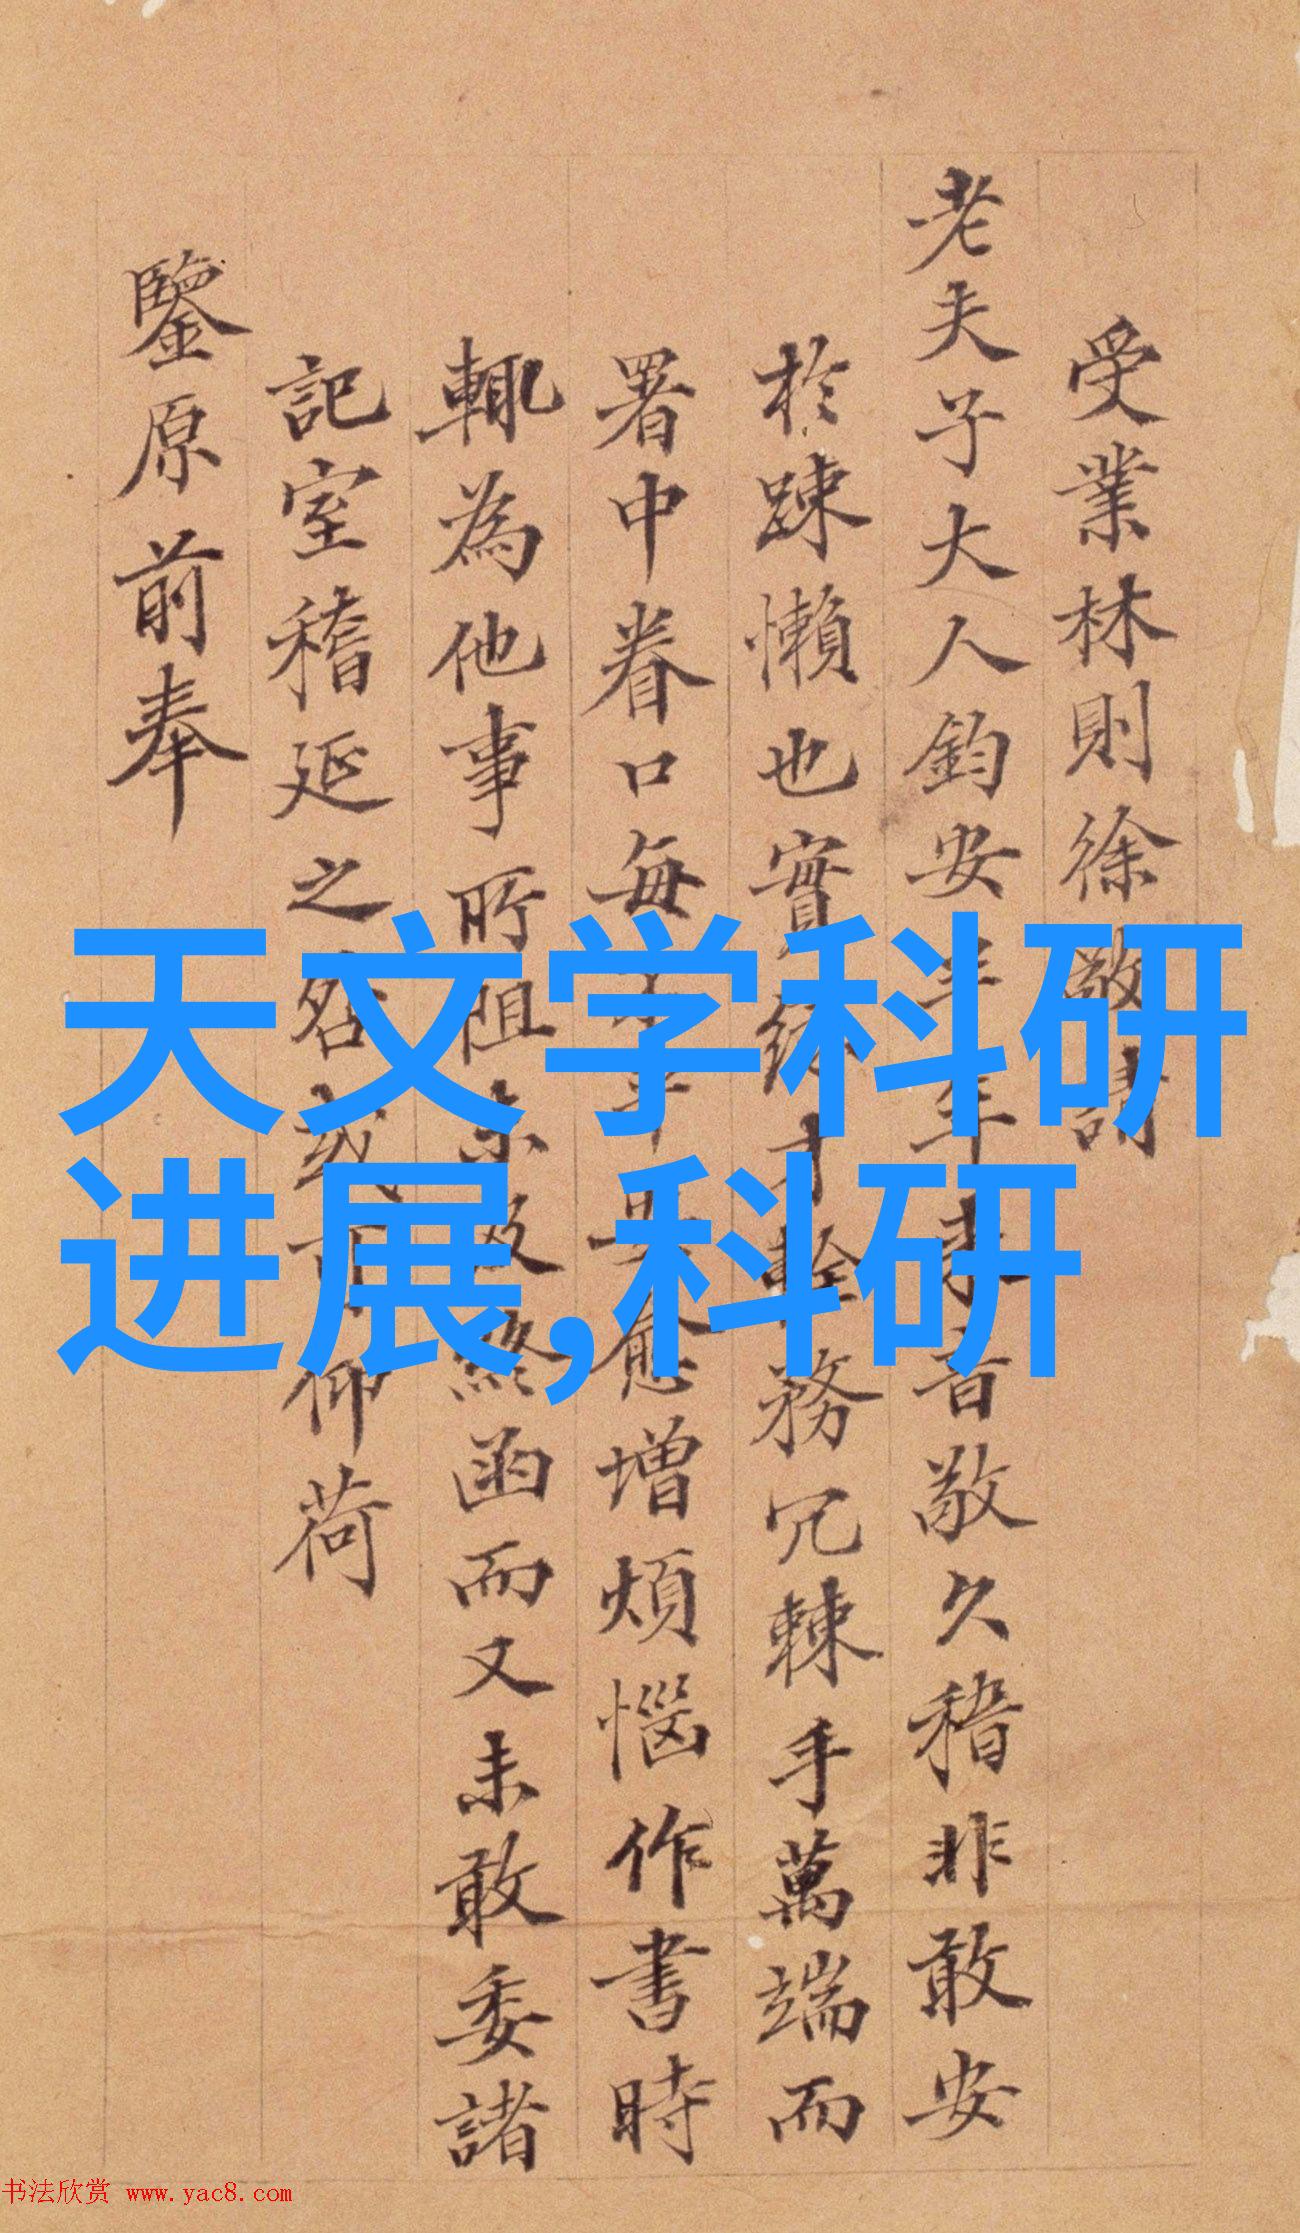 受業林則徐敬請
老夫子大人鈞安半年来音敬久稽非敢安
於踈懶也實緣才幹務冗棘手萬端而
署中眷口每愈增煩惱作書時
輒為他事所阻未及終函而又未敢委諸
記室稽延之仰荷
鑒原前奉
天文学科研
进展,科研
书法欣赏 www.yac8.com